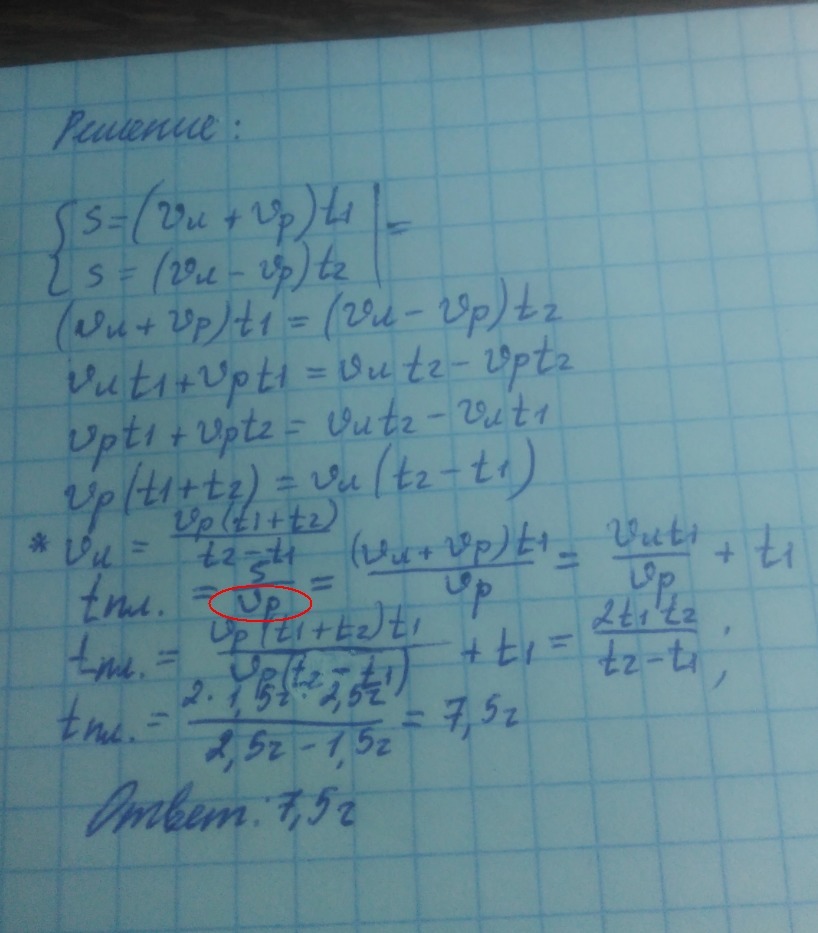 Решение:
{ s = (vл + vр) t1 | =
{ s = (vл - vр) t2 |
(vл + vр) t1 = (vл - vр) t2
vл t1 + vр t1 = vл t2 - vр t2
vр t1 + vр t2 = vл t2 - vл t1
vр (t1 + t2) = vл (t2 - t1)
* vл = vр (t1 + t2) / t2 - t1
tпл. = s / vр = (vл + vр) t1 / vр = vл t1 / vр + t1
tпл. = vр (t1 + t2) t1 / vр (t2 - t1) + t1 = 2t1 t2 / t2 - t1 ;
tпл. = 2 · 1,5ч · 2,5ч / 2,5ч - 1,5ч = 7,5ч
Ответ: 7,5ч